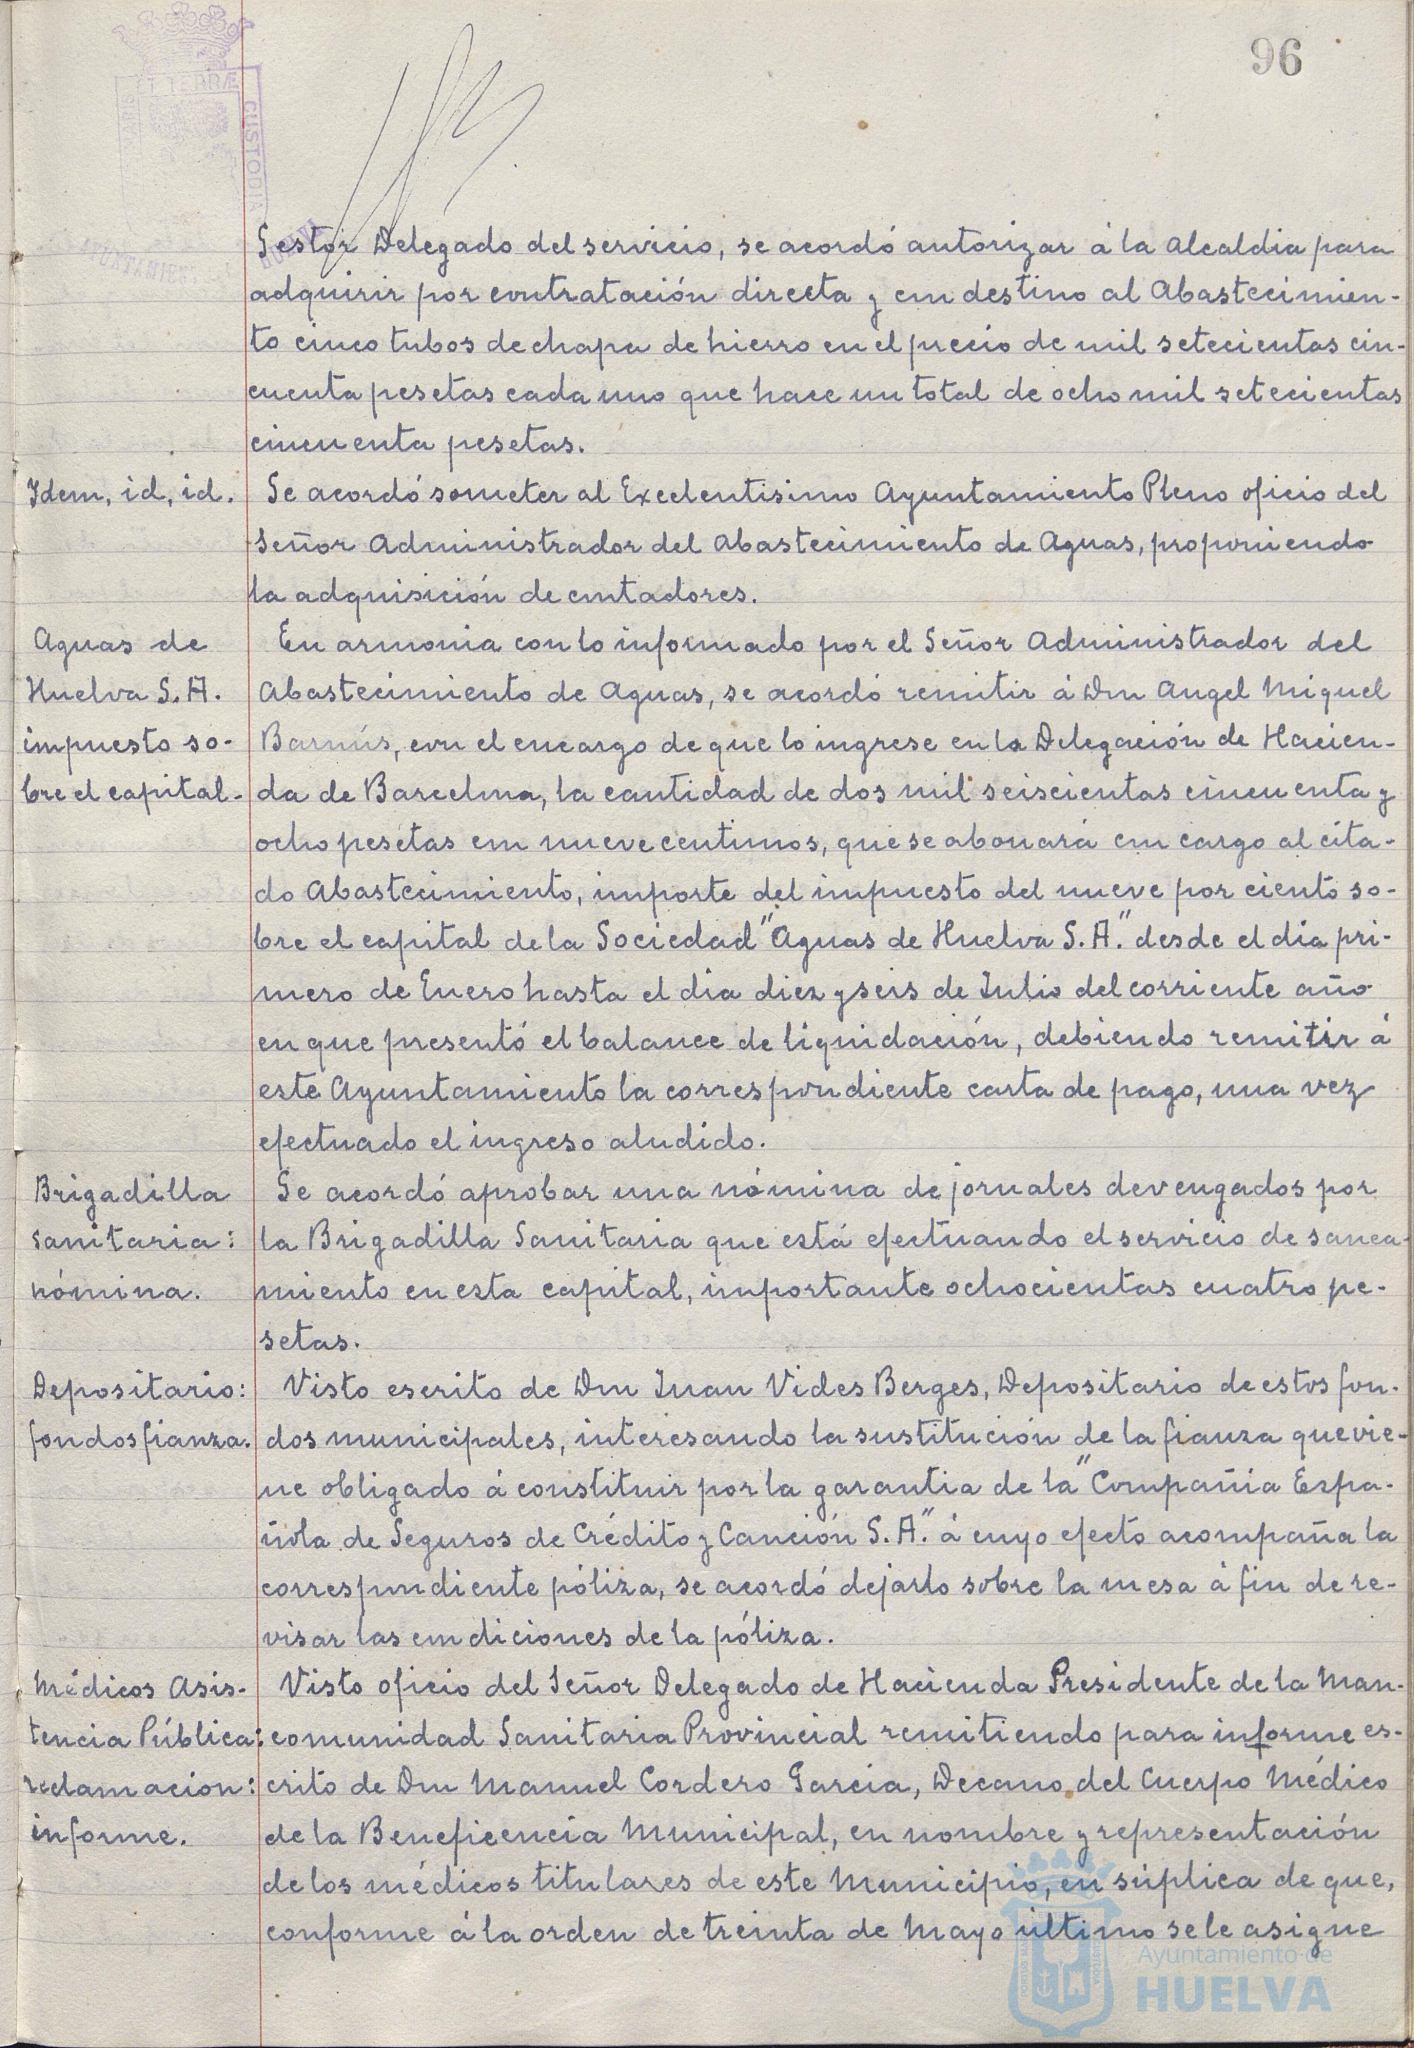 96
TERRÆ
CUSTODIA
Gestor Delegado del servicio, se acordó autorizar á la Alcaldia para
adquirir por contratación directa y con destino al Abastecimien-
to cinco tubos de chapa de hierro en el precio de mil setecientas cin-
cuenta pesetas cada uno que hace un total de ocho mil setecientas
cincuenta pesetas.
Idem, id, id. Se acordó someter al Excelentisimo Ayuntamiento Pleno oficio del
Señor Administrador del Abastecimiento de Aguas, proponiendo
la adquisición de contadores.
Aguas de En armonia con lo informado por el Señor Administrador del
Huelva S.A. Abastecimiento de Aguas, se acordó remitir á Don Angel Miguel
impuesto so- Barnús, con el encargo de que lo ingrese en la Delegación de Hacien-
bre el capital. da de Barcelona, la cantidad de dos mil seiscientas cincuenta y
ocho pesetas con nueve centimos, que se abonará con cargo al cita-
do Abastecimiento, importe del impuesto del nueve por ciento so-
bre el capital de la Sociedad "Aguas de Huelva S.A." desde el dia pri-
mero de Enero hasta el dia diez y seis de Julio del corriente año
en que presentó el balance de liquidación, debiendo remitir á
este Ayuntamiento la correspondiente carta de pago, una vez
efectuado el ingreso aludido.
Brigadilla Se acordó aprobar una nómina de jornales devengados por
sanitaria: la Brigadilla Sanitaria que está efectuando el servicio de sanea-
nómina. miento en esta capital, importante ochocientas cuatro pe-
setas.
Depositario: Visto escrito de Don Juan Vides Berges, Depositario de estos fon-
fondos fianza. dos municipales, interesando la sustitución de la fianza que vie-
ne obligado á constituir por la garantia de la "Compañia Espa-
ñola de Seguros de Crédito y Caución S.A." á cuyo efecto acompaña la
correspondiente póliza, se acordó dejarlo sobre la mesa á fin de re-
visar las condiciones de la póliza.
Médicos Asis- Visto oficio del Señor Delegado de Hacienda Presidente de la Man-
tencia Pública: comunidad Sanitaria Provincial remitiendo para informe es-
reclamación: crito de Don Manuel Cordero Garcia, Decano del Cuerpo Médico
informe. de la Beneficencia Municipal, en nombre y representación
de los médicos titulares de este Municipio, en súplica de que,
conforme á la orden de treinta de Mayo último se le asigne
Ayuntamiento de
HUELVA